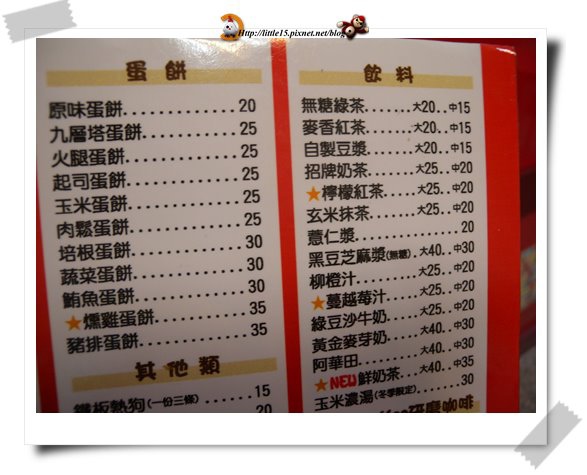 Http://little15.pixnet.net/blog
蛋餅
原味蛋餅............20
九層塔蛋餅..........25
火腿蛋餅............25
起司蛋餅............25
玉米蛋餅............25
肉鬆蛋餅............25
培根蛋餅............30
蔬菜蛋餅............30
鮪魚蛋餅............30
★燻雞蛋餅..........35
豬排蛋餅............35
其他類
鐵板熱狗(一份三條)......15
20
飲料
無糖綠茶.......大20..中15
麥香紅茶.......大20..中15
自製豆漿.......大20..中15
招牌奶茶.......大25..中20
★檸檬紅茶.....大25..中20
玄米抹茶.......大25..中20
薏仁漿................20
黑豆芝麻漿(無糖).大40..中30
柳橙汁.........大25..中20
★蔓越莓汁.....大25..中20
綠豆沙牛奶.....大25..中20
黃金麥芽奶.....大40..中30
阿華田.........大40..中30
★NEW鮮奶茶...大40..中35
玉米濃湯(冬季限定)......30